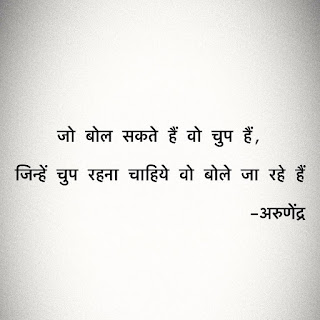 जो बोल सकते हैं वो चुप हैं,
जिन्हें चुप रहना चाहिये वो बोले जा रहे हैं
-अरुणेंद्र